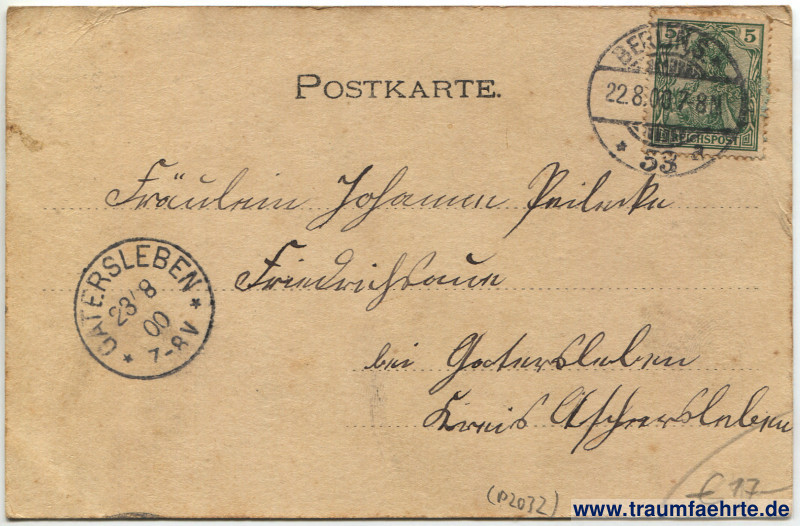 BERLIN S.
5
22.8.00 7-8N
REICHSPOST
* 53 a
POSTKARTE.
Fräulein Johanne
Friedrichsaue
bei Gatersleben
Kreis Aschersleben
GATERSLEBEN
23/8
00
* 7-8V *
(P2032)
€ 17-
www.traumfaehrte.de